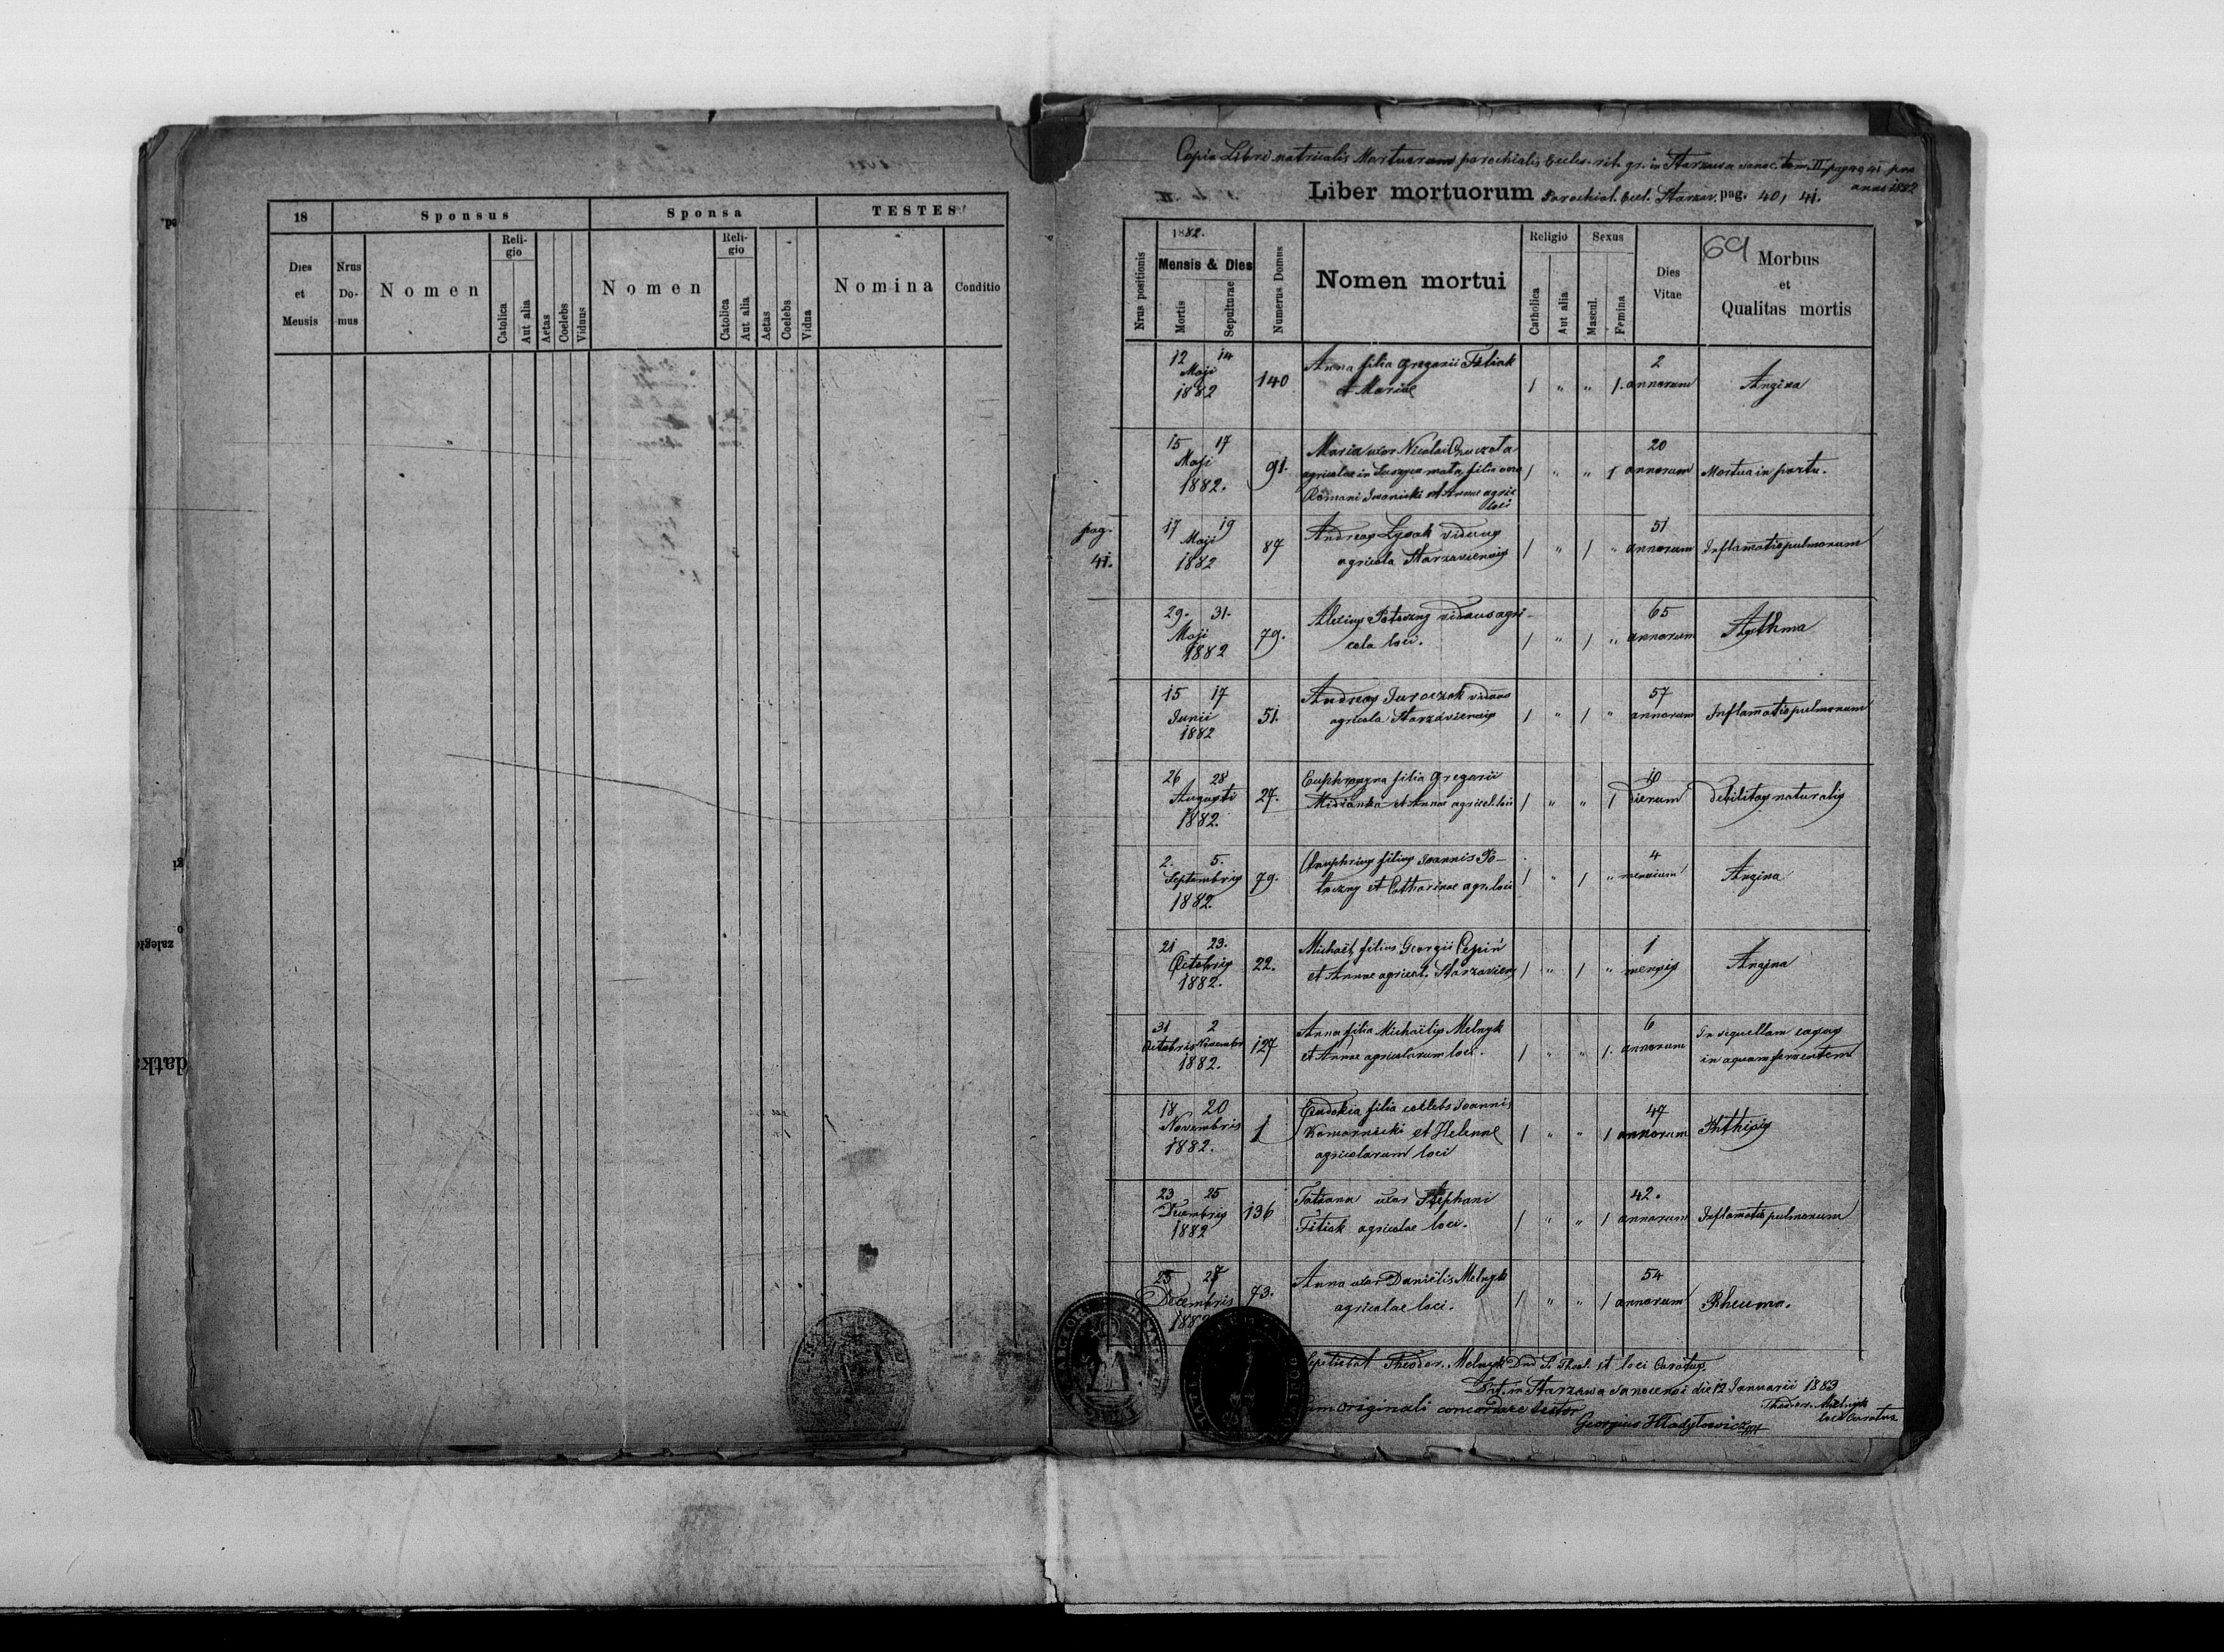 18
Sponsus
Sponsa
TESTES
Dies et Mensis
Nrus Do- mus
Nomen
Reli- gio
Catolica
Aut alia
Aetas
Coelebs
Viduus
Nomen
Reli- gio
Catolica
Aut alia
Aetas
Coelebs
Vidua
Nomina
Conditio
Copia Libri metricalis Mortuorum parochialis Eccles. rit. gr. in Starzawa sanoc. tom. II pag. 41 pro
anno 1882
Liber mortuorum Parochial. Eccl. Starzav. pag. 40, 41.
69
Nrus positionis
1882.
Mensis & Dies
Mortis
Sepulturae
Numerus Domus
Nomen mortui
Religio
Catholica
Aut alia
Sexus
Mascul.
Femina
Dies
Vitae
Morbus
et
Qualitas mortis
12 14 Anna filia Gregorii Fitiak 2
Maji 140 1 " " 1. annorum Angina
1882 et Mariae
15 17 Maria uxor Nicolai 20
Maji 91. agricolae in filia 1 " " 1 annorum Mortua in partu.
1882. Romani Iwanicki et Annae agric
loci
pag. 41.
17 19 Andreas Lysak viduus 51
Maji 87 1 " 1 " annorum Inflamatio pulmonum
1882 agricola Starzaviensis
29. 31. Alexius Potoczny viduus agri- 65
Maji 79. cola loci. 1 " 1 " annorum Asthma
1882
15 17 Andreas Juraczak viduus 57
Junii 51. agricola Starzaviensis 1 " 1 " annorum Inflamatio pulmonum
1882
26 28 Euphrozyna filia Gregorii 10
Augusti 27. Midianka et Annae agricol. loci 1 " " 1 dierum debilitas naturalis
1882.
2. 5. Onuphrius filius Joannis Po- 4
Septembris 79. toczny et Catharinae agr. loci 1 " 1 " mensium Angina
1882.
21 23. Michaël filius Georgii Cepiń 1
Octobris 22. et Annae agricol. Starzaviens 1 " 1 " mensis Angina
1882.
31 2 Anna filia Michaëlis Melnyk 6 In sequellam casus
Octobris Novembr 127 et Annae agricolarum loci. 1 " " 1. annorum in aquam ferventem
1882.
18 20 Eudokia filia coelebs Joannis 47
Novembris 1 Komarnicki et Helenae 1 " " 1 annorum Phthisis
1882. agricolarum loci
23 25 Tatiana uxor Stephani 42.
Decembris 136 Fitiak agricolae loci. 1 " " 1 annorum Inflamatio pulmonum
1882
25 27 Anna uxor Daniëlis Melnyk 54
Decembris 73. agricolae loci. 1 " " 1 annorum Rheuma.
1882
Sepeliebat Theodor. Melnyk et loci Curatus.
Dat. in Starzawa sanocensi die 12 Januarii 1883
Theodor. Melnyk
loci Curatus
originali concordare testor
Georgius Hładyłowicz